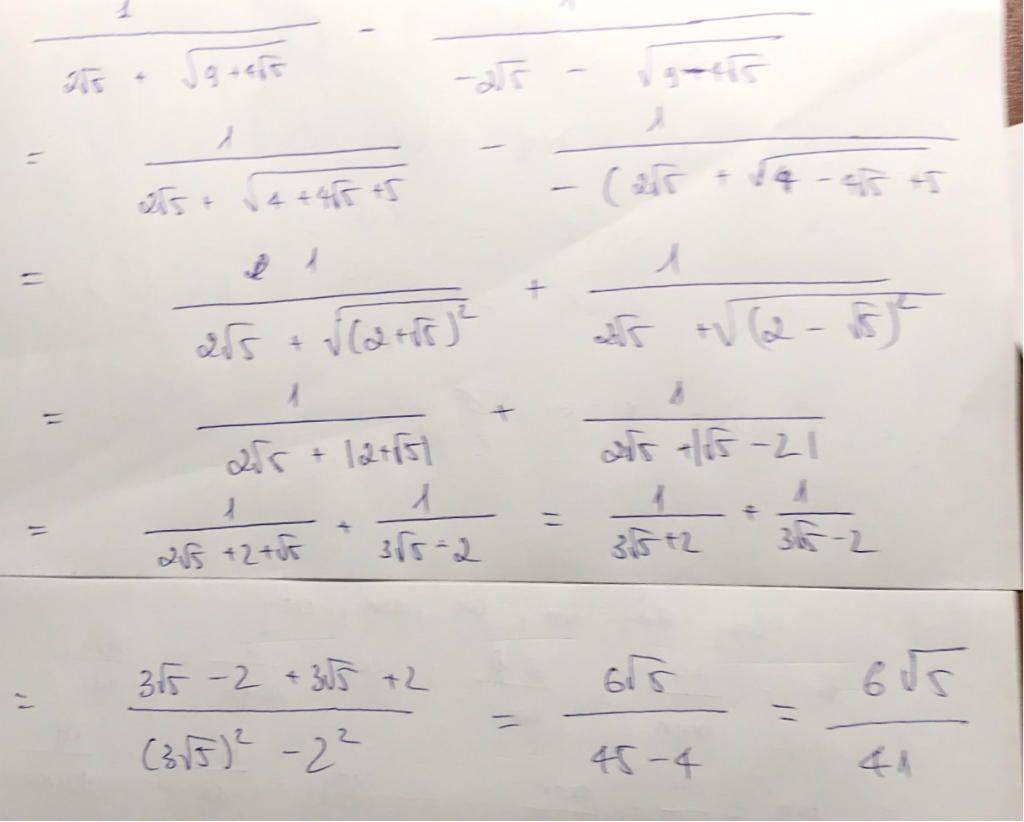 1/(2√5 + √(9+4√5)) - 1/(-2√5 - √(9-4√5))
= 1/(2√5 + √(4+4√5+5)) - 1/(-(2√5 + √(4-4√5+5))
= 1/(2√5 + √((2+√5)²)) + 1/(2√5 + √((2-√5)²))
= 1/(2√5 + |2+√5|) + 1/(2√5 + |√5-2|)
= 1/(2√5+2+√5) + 1/(3√5-2) = 1/(3√5+2) + 1/(3√5-2)
= (3√5-2+3√5+2)/((3√5)²-2²) = 6√5/(45-4) = 6√5/41